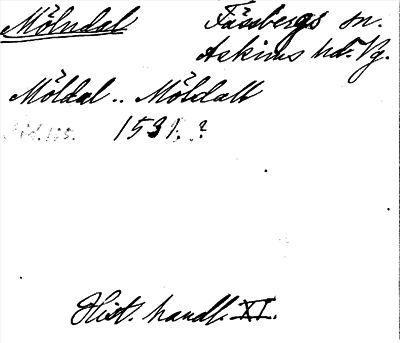 Mölndal
Fässbergs sn.
Askims hd. Vg.
Möldal .. Möldall
1531. ?
Hist. handl. XI.